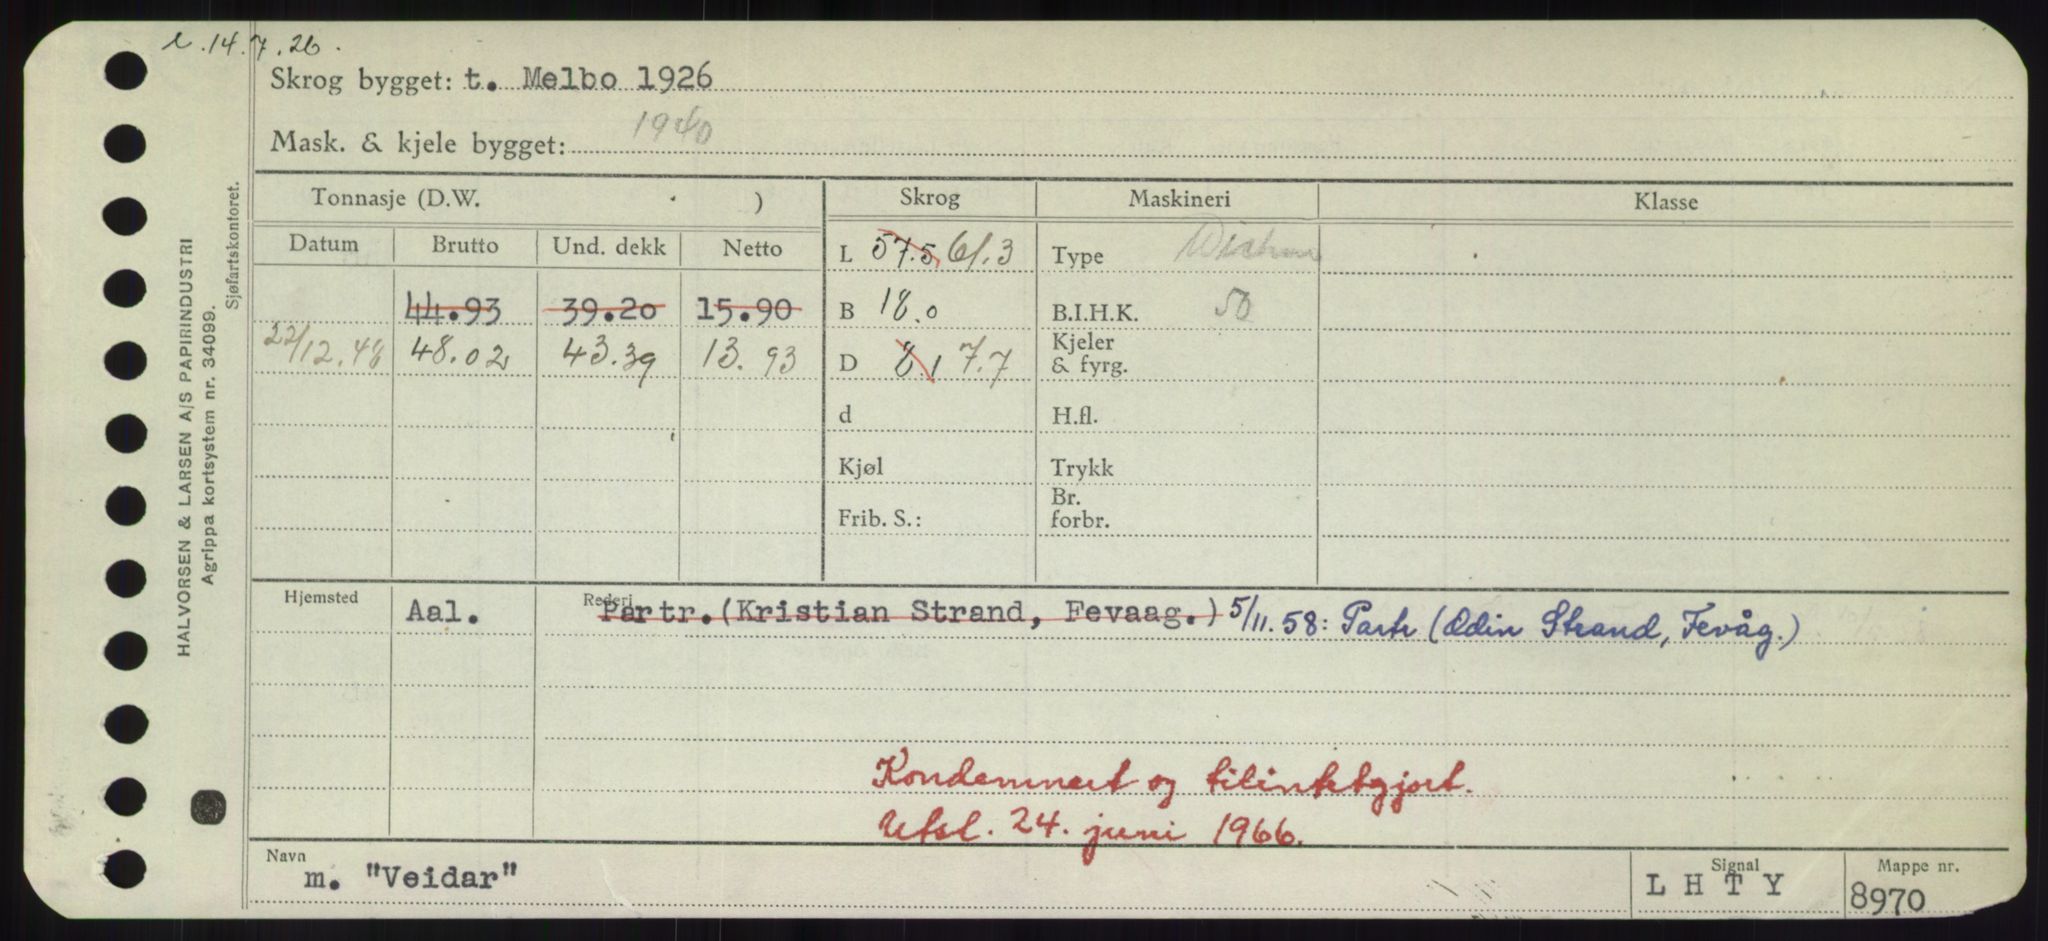 l. 14.7.26.
Skrog bygget: t. Melbo 1926
Mask. & kjele bygget: 1940
Tonnasje (D.W. ) Skrog Maskineri Klasse
Datum Brutto Und. dekk Netto L 57.5 61.3 Type Wichm
44.93 39.20 15.90 B 18.0 B.I.H.K. 50
22/12.48 48.02 43.39 13.93 D 8.1 7.7 Kjeler & fyrg.
d H.fl.
Kjøl Trykk
Frib. S.: Br. forbr.
Hjemsted Aal. Rederi Partr.(Kristian Strand, Fevaag.) 5/11.58: Partr (Odin Strand, Fevåg.)
Kondemnert og tilintetgjort.
Utsl. 24. juni 1966.
Navn m. "Veidar" Signal L H T Y Mappe nr. 8970
HALVORSEN & LARSEN A/S PAPIRINDUSTRI
Agrippa kortsystem nr. 34099.
Sjøfartskontoret.